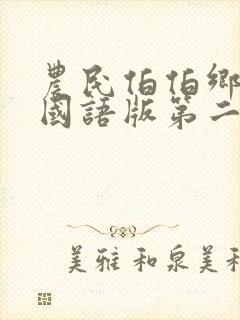 農民伯伯鄉
國語版第二
美雅和泉美和